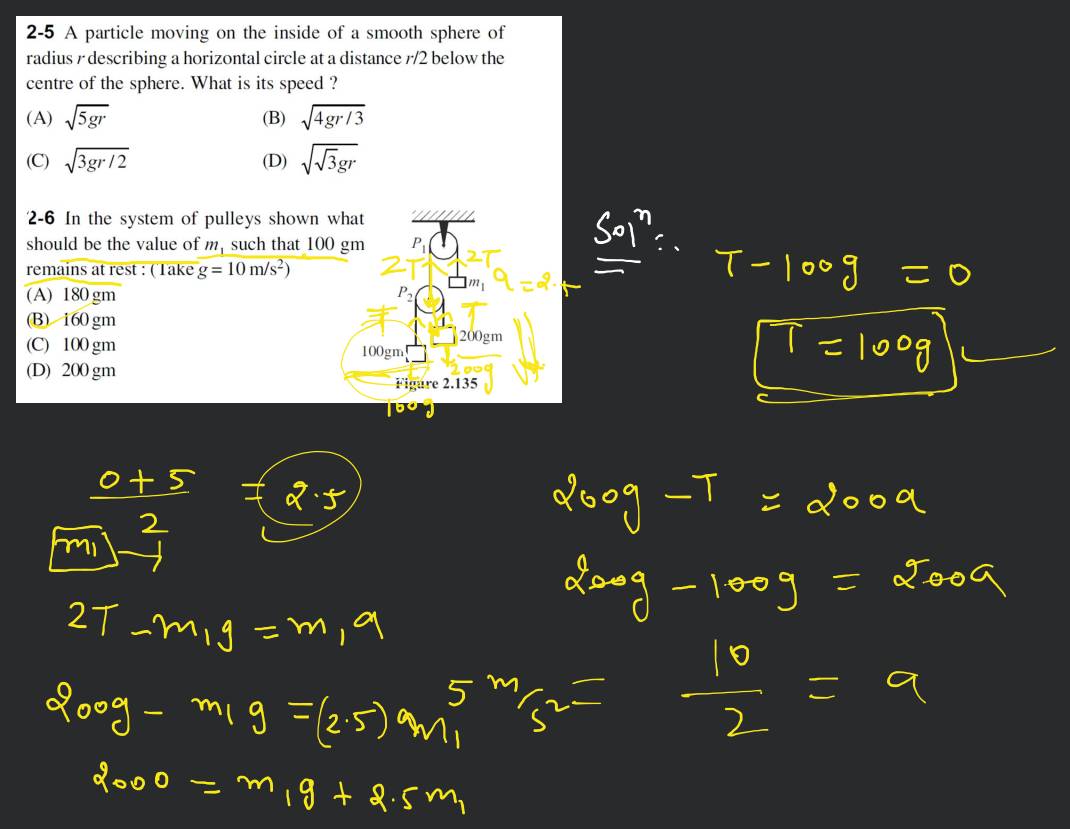 2-5 A particle moving on the inside of a smooth sphere of
radius r describing a horizontal circle at a distance r/2 below the
centre of the sphere. What is its speed ?
(A) √5gr (B) √4gr/3
(C) √3gr/2 (D) √√3gr
2-6 In the system of pulleys shown what
should be the value of m₁ such that 100 gm
remains at rest : (Take g = 10 m/s²)
(A) 180 gm
(B) 160 gm
(C) 100 gm
(D) 200 gm
P₁
2T 2T
m₁
P₂
T T
200gm
100gm
200g
Figure 2.135
100g
Solⁿ :.
T - 100g = 0
T = 100g
0 + 5 / 2 = 2.5
m₁
2T - m₁g = m₁a
200g - m₁g = (2.5) m₁
2000 = m₁g + 2.5m₁
200g - T = 200a
200g - 100g = 200a
5 m/s² = 10/2 = a